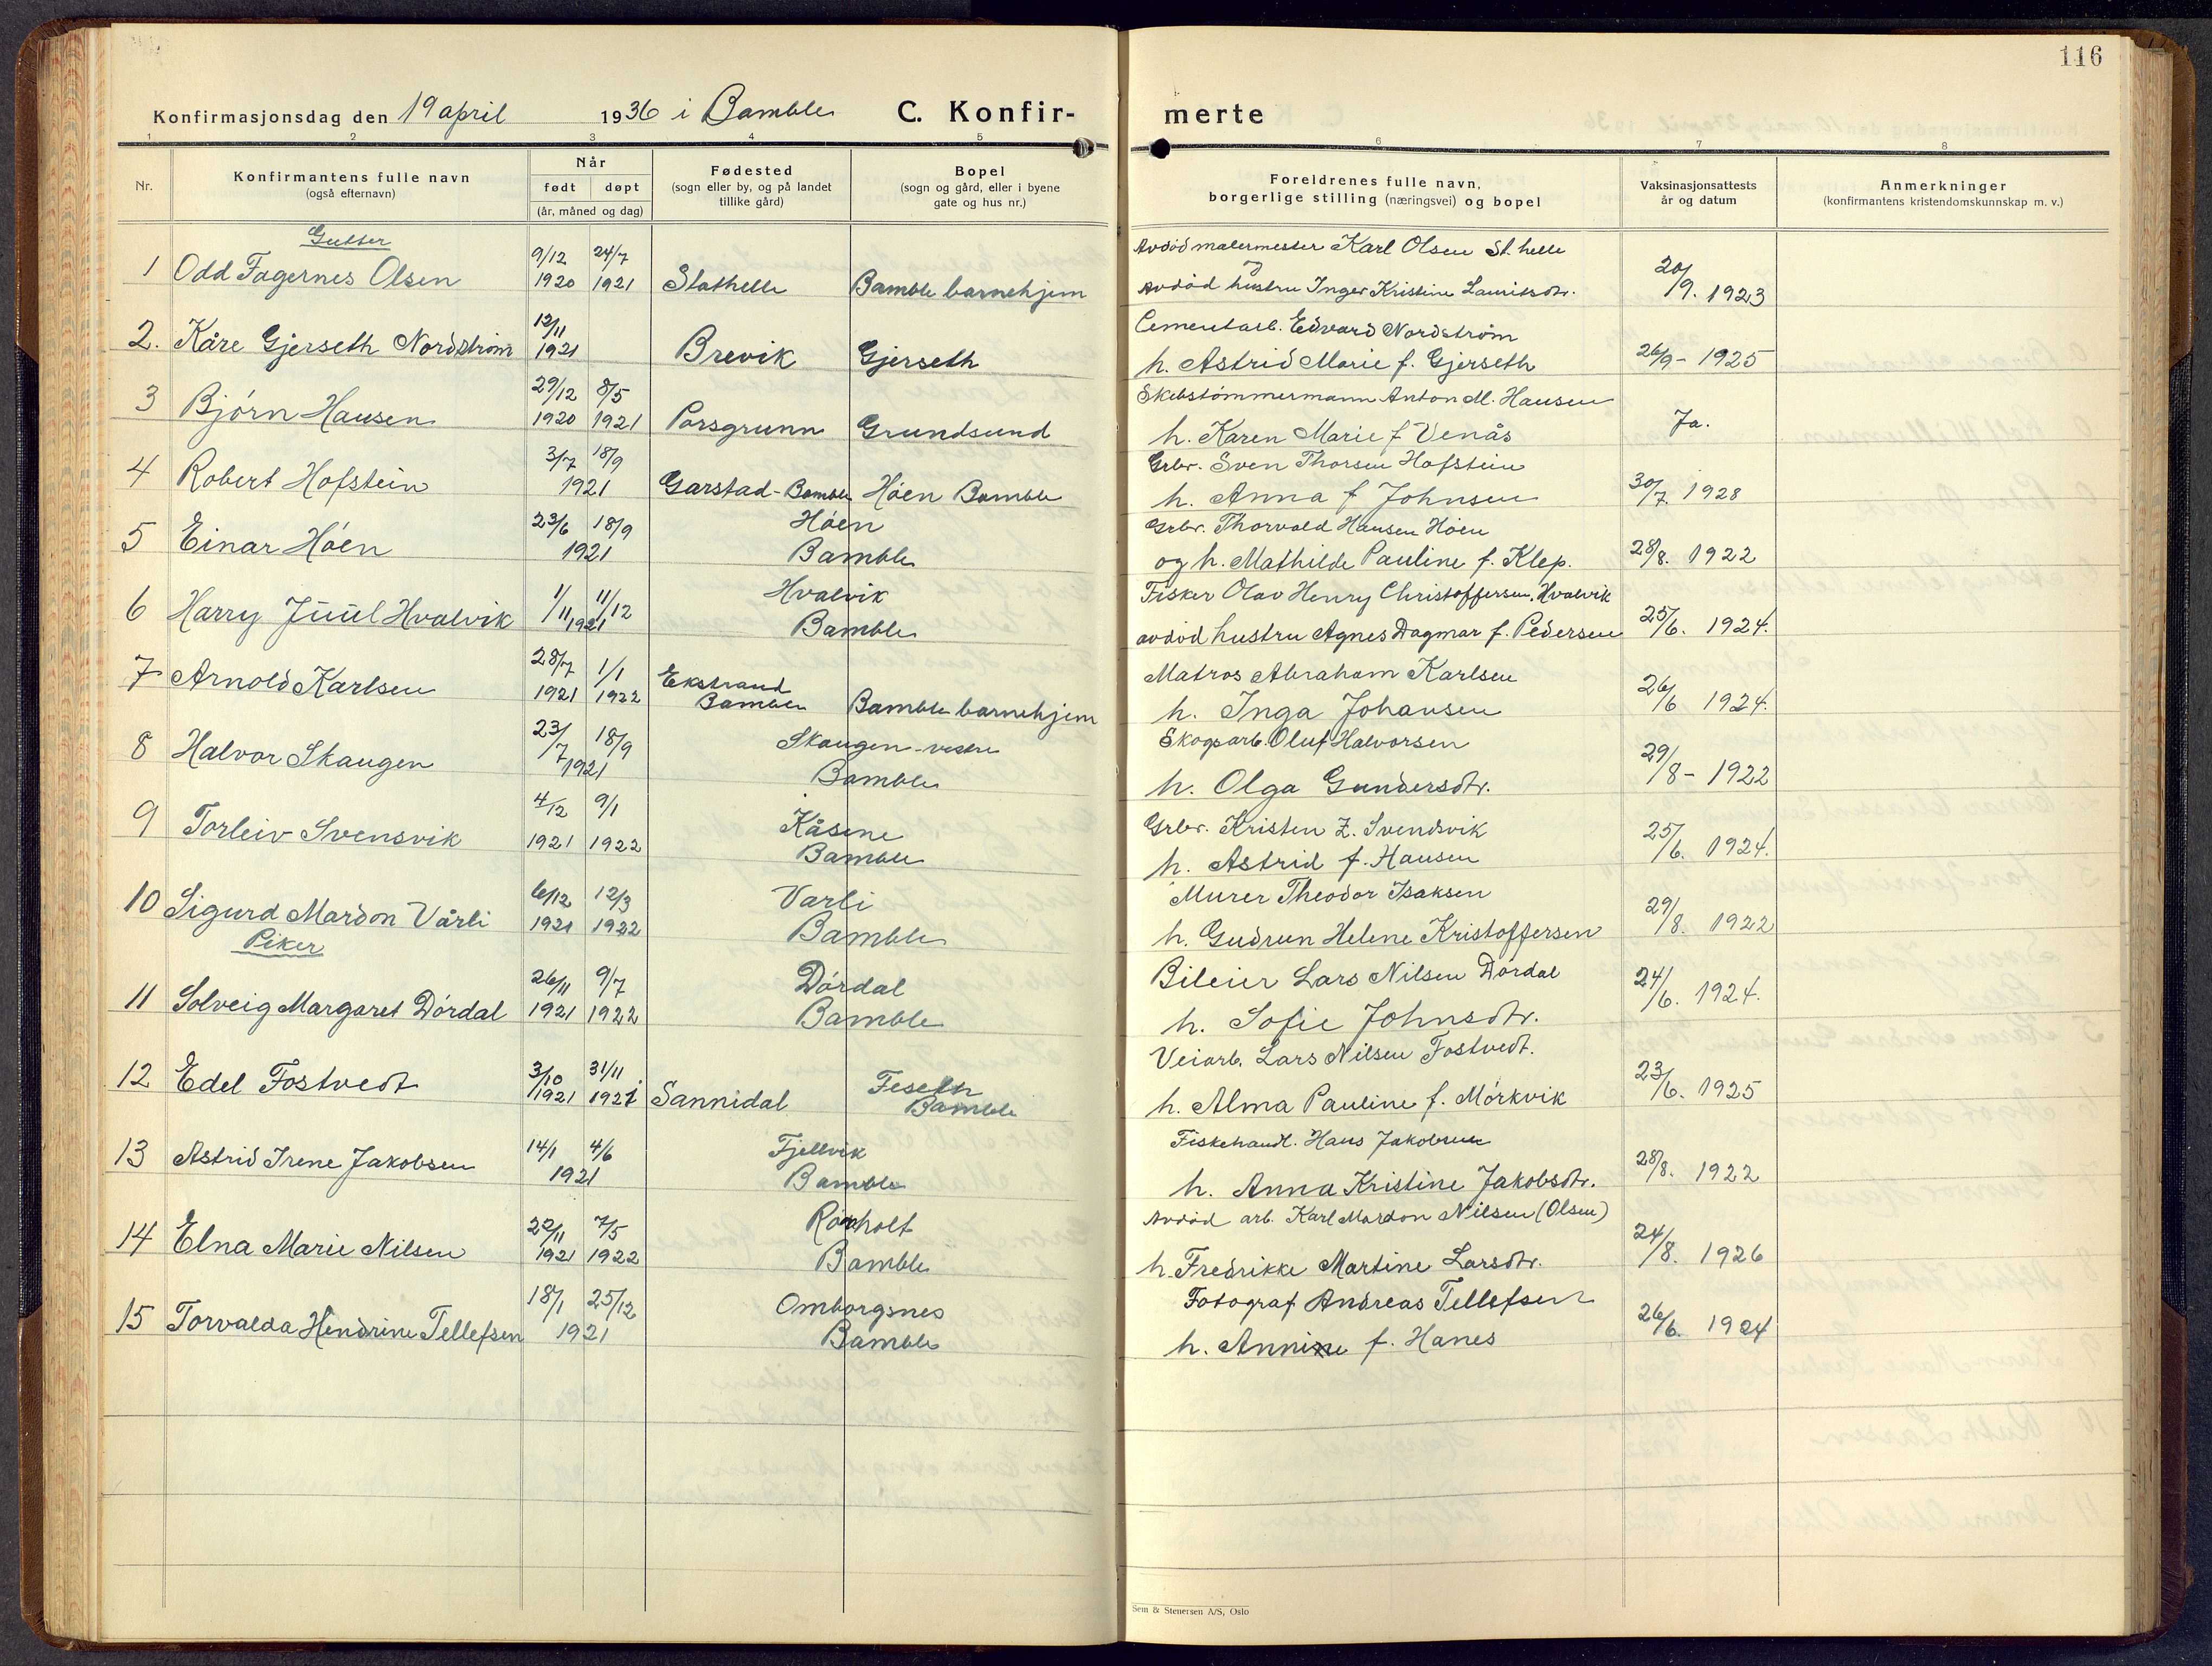 116
Konfirmasjonsdag den 19 april 1936 i Bamble C. Konfir-
merte
1 2 3 4 5
6 7 8
Nr.
Konfirmantens fulle navn
(også efternavn)
Når
født døpt
(år, måned og dag)
Fødested
(sogn eller by, og på landet
tillike gård)
Bopel
(sogn og gård, eller i byene
gate og hus nr.)
Foreldrenes fulle navn,
borgerlige stilling (næringsvei) og bopel
Vaksinasjonsattests
år og datum
Anmerkninger
(konfirmantens kristendomskunnskap m. v.)
Gutter
1 Odd Fagernes Olsen 9/12 1920 24/7 1921 Stathelle Bamble barnehjem
Avdød malermester Karl Olsen St. helle
og
avdød hustru Inger Kristine Lauritsdtr. 20/9. 1923
2. Kåre Gjerseth Nordstrøm 12/11 1921 Brevik Gjerseth
Cementarb. Edvard Nordstrøm
h. Astrid Marie f. Gjerseth 26/9 - 1925
3 Bjørn Hansen 29/12 1920 8/5 1921 Porsgrunn Grundsund
Skibstømmermann Anton M. Hansen
h. Karen Marie f Venås Ja.
4 Robert Hofstein 3/7 18/9 1921 Garstad - Bamble Høen Bamble
Grbr. Sven Thorsen Hofstein
h. Anna f Johnsen 30/7. 1928
5 Einar Høen 23/6 18/9 1921 Høen
Bamble
Grbr. Thorvald Hansen Høen
og h. Mathilde Pauline f. Klep. 28/8. 1922
6 Harry Juul Hvalvik 1/11 11/12 1921 Hvalvik
Bamble
Fisker Olav Henry Christoffersen, Hvalvik
avdød hustru Agnes Dagmar f. Pedersen 25/6. 1924.
7 Arnold Karlsen 28/7 1921 1/1 1922 Ekstrand
Bamble Bamble barnehjem
Matros Abraham Karlsen
h. Inga Johansen 26/6 1924.
8 Halvor Skaugen 23/7 18/9 1921 Skaugen - vestre
Bamble
Skogsarb. Oluf Halvorsen
h. Olga Gundersdtr. 29/8 - 1922
9 Torleiv Svensvik 4/12 1921 9/1 1922 Kåsene
Bamble
Grbr. Kristen Z. Svendsvik
h. Astrid f. Hansen 25/6. 1924.
10 Sigurd Mardon Vårli 6/12 1921 12/3 1922 Varli
Bamble
Murer Theodor Isaksen
h. Gudrun Helene Kristoffersen 29/8. 1922
Piker
11 Solveig Margaret Dørdal 26/11 1921 9/7 1922 Dørdal
Bamble
Bileier Lars Nilsen Dørdal
h. Sofie Johnsdtr. 24/6. 1924.
12 Edel Fostvedt 3/10 1921 31/11 1921 Sannidal Feseth
Bamble
Veiarb. Lars Nilsen Fostvedt.
h. Alma Pauline f. Mørkvik 23/6. 1925
13 Astrid Irene Jakobsen 14/1 4/6 1921 Fjellvik
Bamble
Fiskehandl. Hans Jakobsen
h. Anna Kristine Jakobsdtr. 28/8. 1922
14 Elna Marie Nilsen 22/11 1921 7/5 1922 Rørholt
Bamble
Avdød arb. Karl Mardon Nilsen (Olsen)
h. Fredrikke Martine Larsdtr. 24/8. 1926
15 Torvalda Hendrine Tellefsen 18/1 25/12 1921 Omborgsnes
Bamble
Fotograf Andreas Tellefsen
h. Annine f. Hanes 26/6. 1924
Sem & Stenersen A/S, Oslo